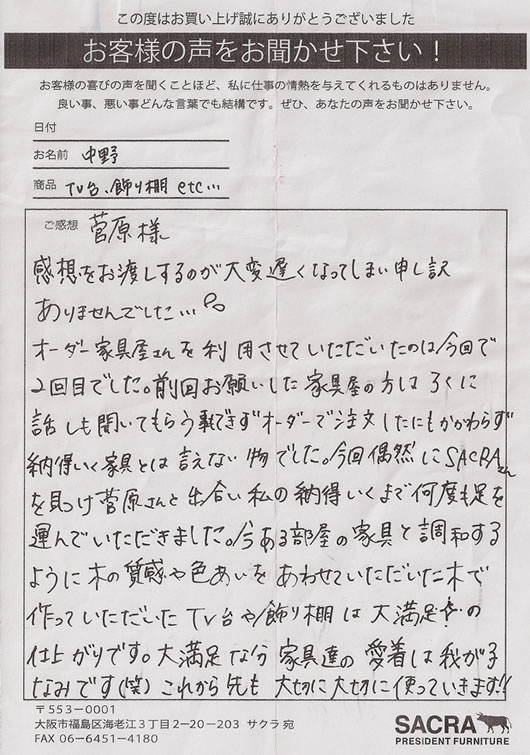 この度はお買い上げ誠にありがとうございました
お客様の声をお聞かせ下さい！
お客様の喜びの声を聞くことほど、私に仕事の情熱を与えてくれるものはありません。
良い事、悪い事どんな言葉でも結構です。ぜひ、あなたの声をお聞かせ下さい。
日付
お名前 中野
商品 TV台、飾り棚 etc…
ご感想 菅原様
感想をお渡しするのが大変遅くなってしまい申し訳
ありませんでした…
オーダー家具屋さんを利用させていただいたのは今回で
2回目でした。前回お願いした家具屋の方はろくに
話しも聞いてもらう事できずオーダーで注文したにもかかわらず
納得いく家具とは言えない物でした。今回偶然にSACRAさん
を見つけ菅原さんと出合い私の納得いくまで何度も足を
運んでいただきました。今ある部屋の家具と調和する
ように木の質感や色あいをあわせていただいた木で
作っていただいたTV台や飾り棚は大満足の
仕上がりです。大満足な分家具達の愛着は我が子
なみです(笑)これから先も大切に大切に使っていきます!!
〒553-0001
大阪市福島区海老江3丁目2-20-203 サクラ宛
FAX 06-6451-4180
SACRA
PRESIDENT FURNITURE